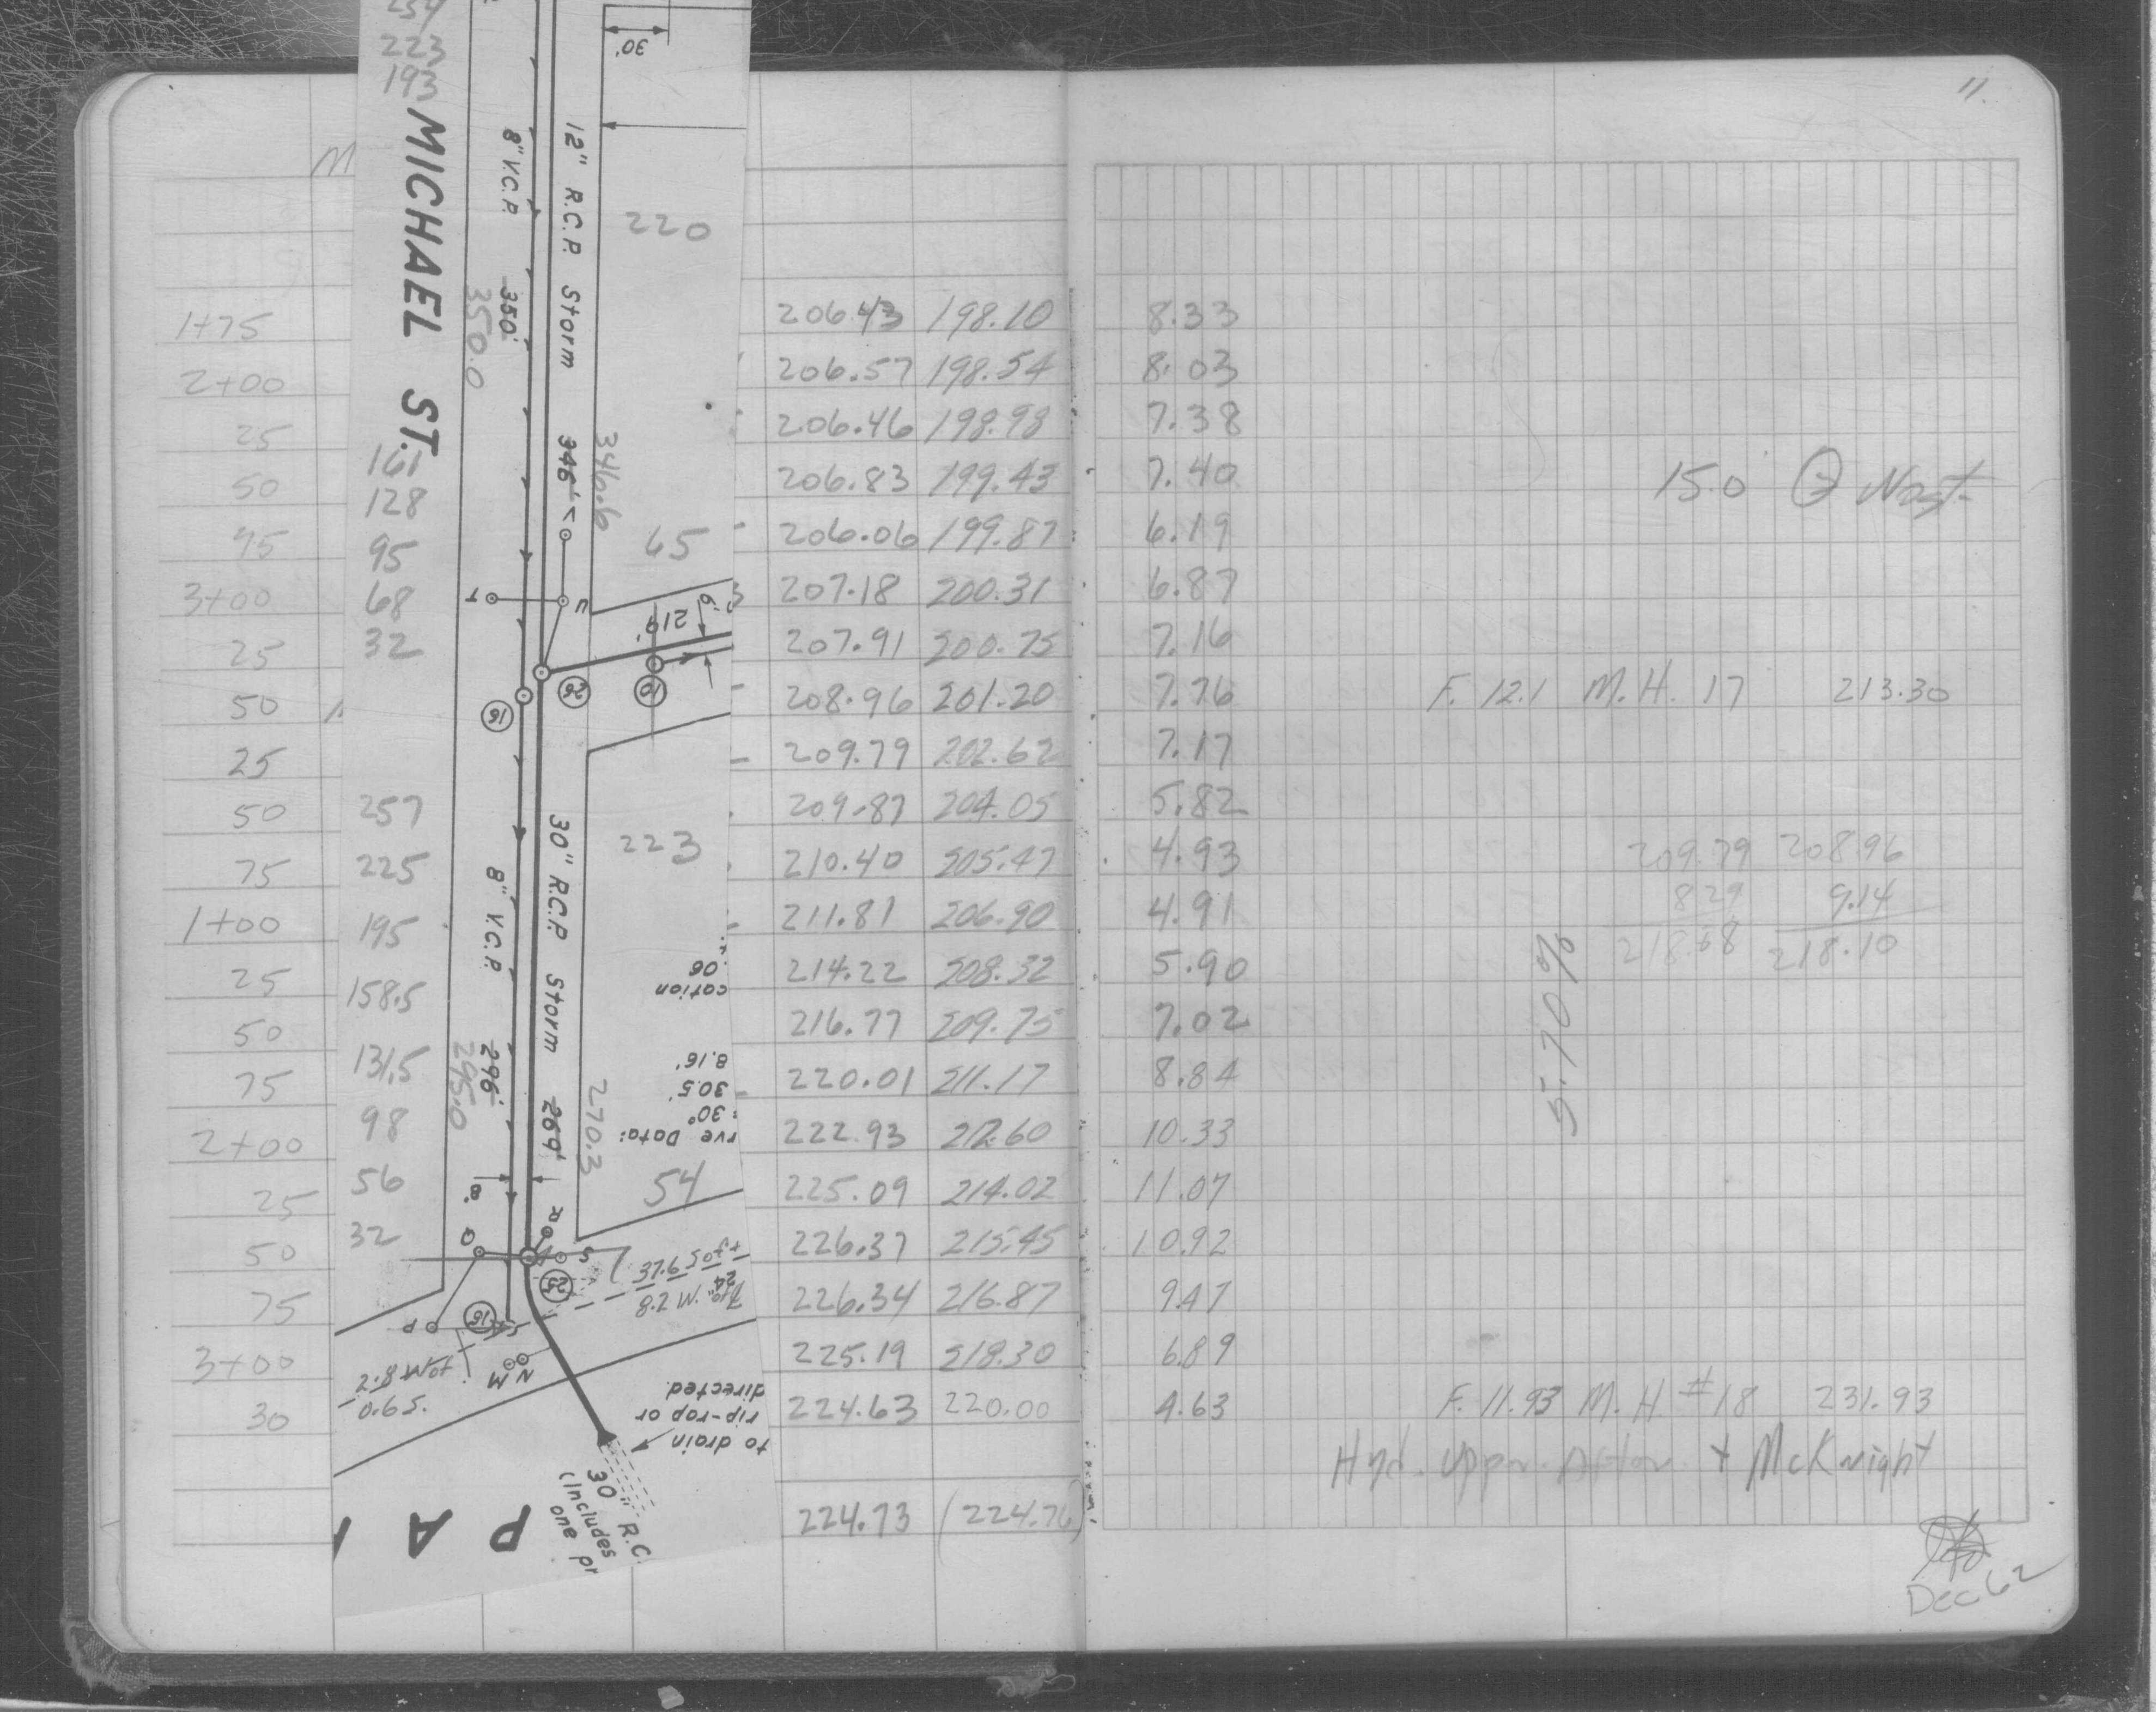 11.
254
223
193
30'
M
MICHAEL ST.
8" V.C.P.
350'
350.0
12" R.C.P. Storm 346'
346.6
220
65
161
128
95
68
32
T
U
219'
6'
16
26
10
257
225
195
158.5
131.5
98
56
32
8" V.C.P.
296'
295.0
30" R.C.P. Storm 269'
270.3
223
54
cation
.06
8.16'
30.5'
= 30°
rve Data:
8'
Q
R
S
25
15
P
N M
37.6
2.8
0.65.
to drain
rip-rap or
directed.
30" R.C.
(Includes
one pr
P A
1+75 206.43 198.10 8.33
2+00 206.57 198.54 8.03
25 206.46 198.98 7.38
50 206.83 199.43 7.40 15.0
75 206.06 199.87 6.19
3+00 207.18 200.31 6.87
25 207.91 200.75 7.16
50 208.96 201.20 7.76 F. 12.1 M.H. 17 213.30
25 209.79 202.62 7.17
50 209.87 204.05 5.82
75 210.40 205.47 4.93 209.79 208.96
1+00 211.81 206.90 4.91 8.29 9.14
25 214.22 208.32 5.90 218.68 218.10
50 216.77 209.75 7.02
5.70%
75 220.01 211.17 8.84
2+00 222.93 212.60 10.33
25 225.09 214.02 11.07
50 226.37 215.45 10.92
75 226.34 216.87 9.47
3+00 225.19 218.30 6.89
30 224.63 220.00 4.63 F. 11.93 M.H. #18 231.93
Hyd. Upper Afton + McKnight
224.73 (224.76)
Dec 62